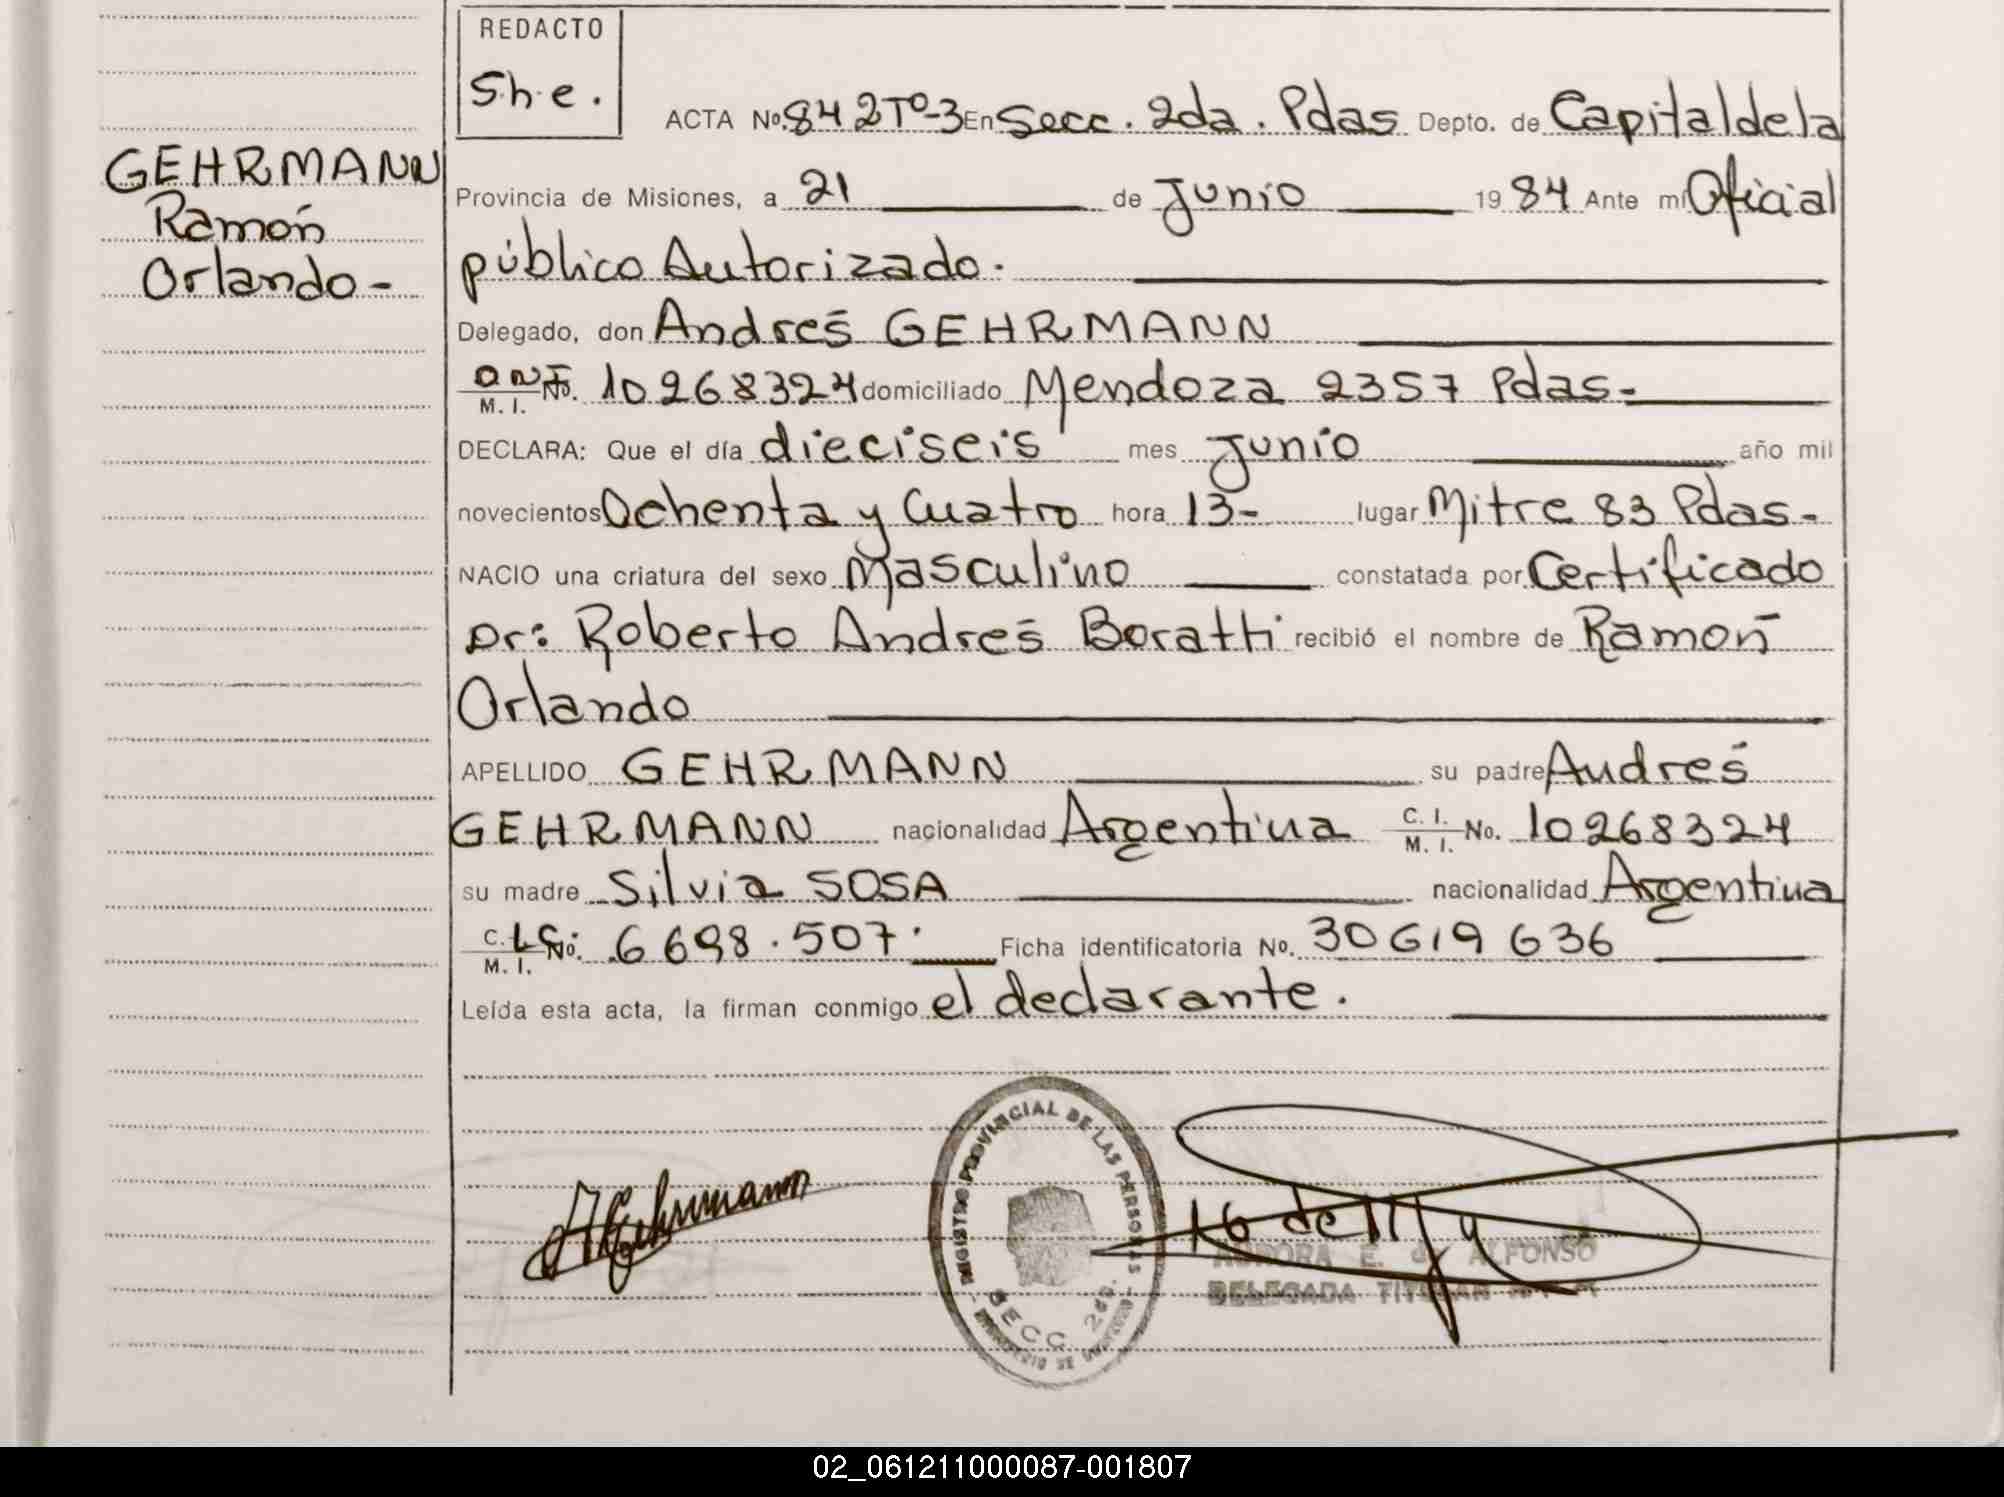 REDACTO
S.h.e.
ACTA No. 842 Tº-3 En Secc. 2da. Pdas Depto. de Capital de la
GEHRMANN
Ramón
Orlando-
Provincia de Misiones, a 21 de Junio 1984 Ante mí Oficial
público Autorizado.
Delegado, don Andrés GEHRMANN
D.N.I. No. 10268324 domiciliado Mendoza 2357 Pdas-
M. I.
DECLARA: Que el día dieciseis mes Junio año mil
novecientos Ochenta y Cuatro hora 13- lugar Mitre 83 Pdas-
NACIO una criatura del sexo Masculino constatada por Certificado
Dr: Roberto Andrés Boratti recibió el nombre de Ramón
Orlando
APELLIDO GEHRMANN su padre Andrés
GEHRMANN nacionalidad Argentina C. I. No. 10268324
M. I.
su madre Silvia SOSA nacionalidad Argentina
C. L.C. No. 6698.507. Ficha identificatoria No. 30619636
M. I.
Leída esta acta, la firman conmigo el declarante.
A Gehrmann
REGISTRO PROVINCIAL DE LAS PERSONAS
SECC. 2da.
AURORA E. de ALFONSO
DELEGADA TITULAR
02_061211000087-001807